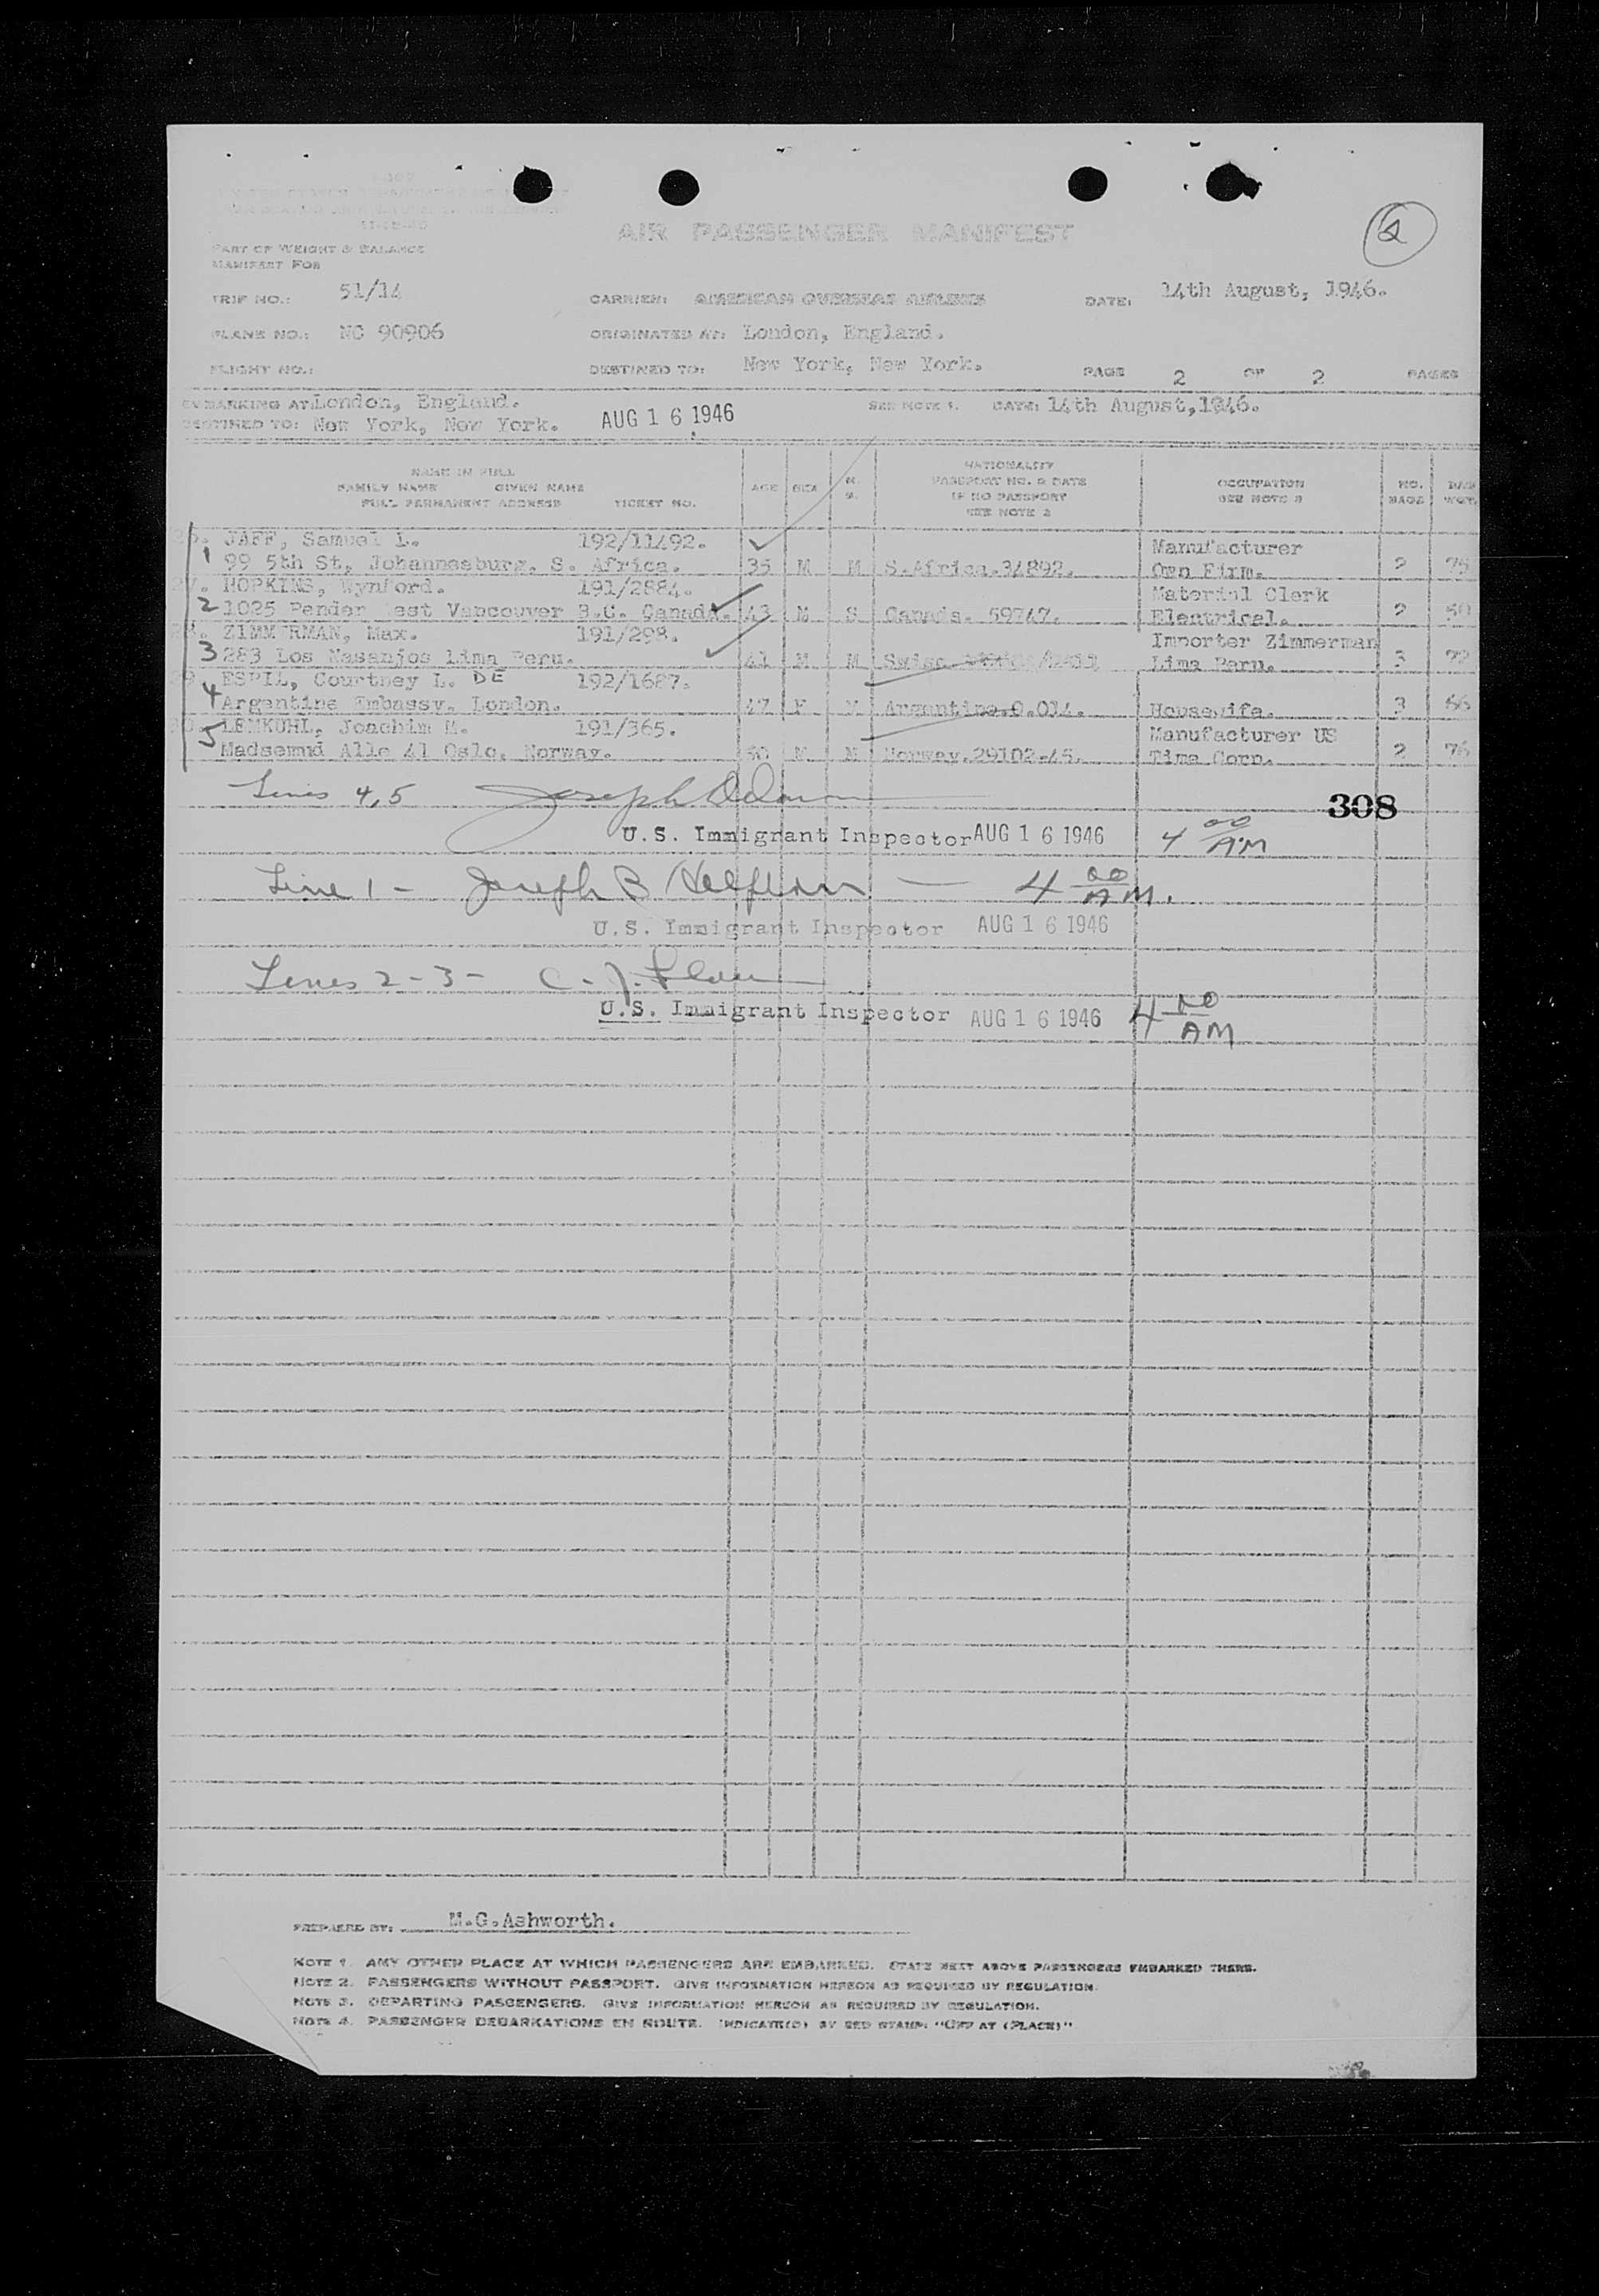 11-15-45
PART OF WEIGHT & BALANCE
MANIFEST FOR
AIR PASSENGER MANIFEST
2
TRIP NO.: 51/14 CARRIER: AMERICAN OVERSEAS AIRLINES DATE: 14th August, 1946.
PLANE NO.: NC 90906 ORIGINATED AT: London, England.
FLIGHT NO.: DESTINED TO: New York, New York. PAGE 2 OF 2 PAGES
EMBARKING AT: London, England. SEE NOTE 1. DATE: 14th August, 1946.
DESTINED TO: New York, New York. AUG 16 1946
NAME IN FULL
FAMILY NAME GIVEN NAME
FULL PERMANENT ADDRESS TICKET NO. AGE SEX M. S. NATIONALITY
PASSPORT NO. & DATE
IF NO PASSPORT
SEE NOTE 2
OCCUPATION
SEE NOTE 3
NO. BAGS BAG WGT.
JAFF, Samuel L. 192/11492. Manufacturer
1 99 5th St, Johannesburg. S. Africa. 35 M M S.Africa.34892. Own Firm. 2 75
HOPKINS, Wynford. 191/2884. Material Clerk
2 1025 Pender West Vancouver B.C. Canada. 43 M S Canada. 59747. Electrical. 2 50
ZIMMERMAN, Max. 191/298. Importer Zimmerman
3 283 Los Masanjos Lima Peru. 41 M M Swiss Lima Peru. 3 72
ESPIL, Courtney L. DE 192/1687.
4 Argentine Embassy. London. 47 F M Argentine.0.014. Housewife. 3 66
LEMKUHL, Joachim M. 191/365. Manufacturer US
5 Madserud Alle 41 Oslo. Norway. 50 M M Norway.29102-45. Time Corp. 2 76
Lines 4,5 Joseph
308
U.S. Immigrant Inspector AUG 16 1946 4 00 AM
Line 1 - Joseph B — 4 00 AM.
U.S. Immigrant Inspector AUG 16 1946
Lines 2-3- C. J.
U.S. Immigrant Inspector AUG 16 1946 4 00 AM
PREPARED BY: M.G.Ashworth.
NOTE 1. ANY OTHER PLACE AT WHICH PASSENGERS ARE EMBARKED. STATE NEXT ABOVE PASSENGERS EMBARKED THERE.
NOTE 2. PASSENGERS WITHOUT PASSPORT. GIVE INFORMATION HEREON AS REQUIRED BY REGULATION.
NOTE 3. DEPARTING PASSENGERS. GIVE INFORMATION HEREON AS REQUIRED BY REGULATION.
NOTE 4. PASSENGER DEBARKATIONS EN ROUTE. INDICATE(D) BY RED STAMP: "OFF AT (PLACE)"